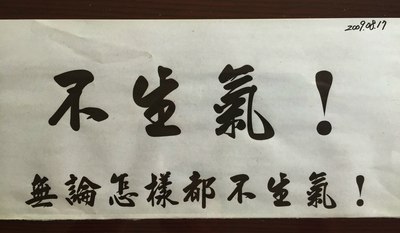 2009.08.17
不生氣！
無論怎樣都不生氣！